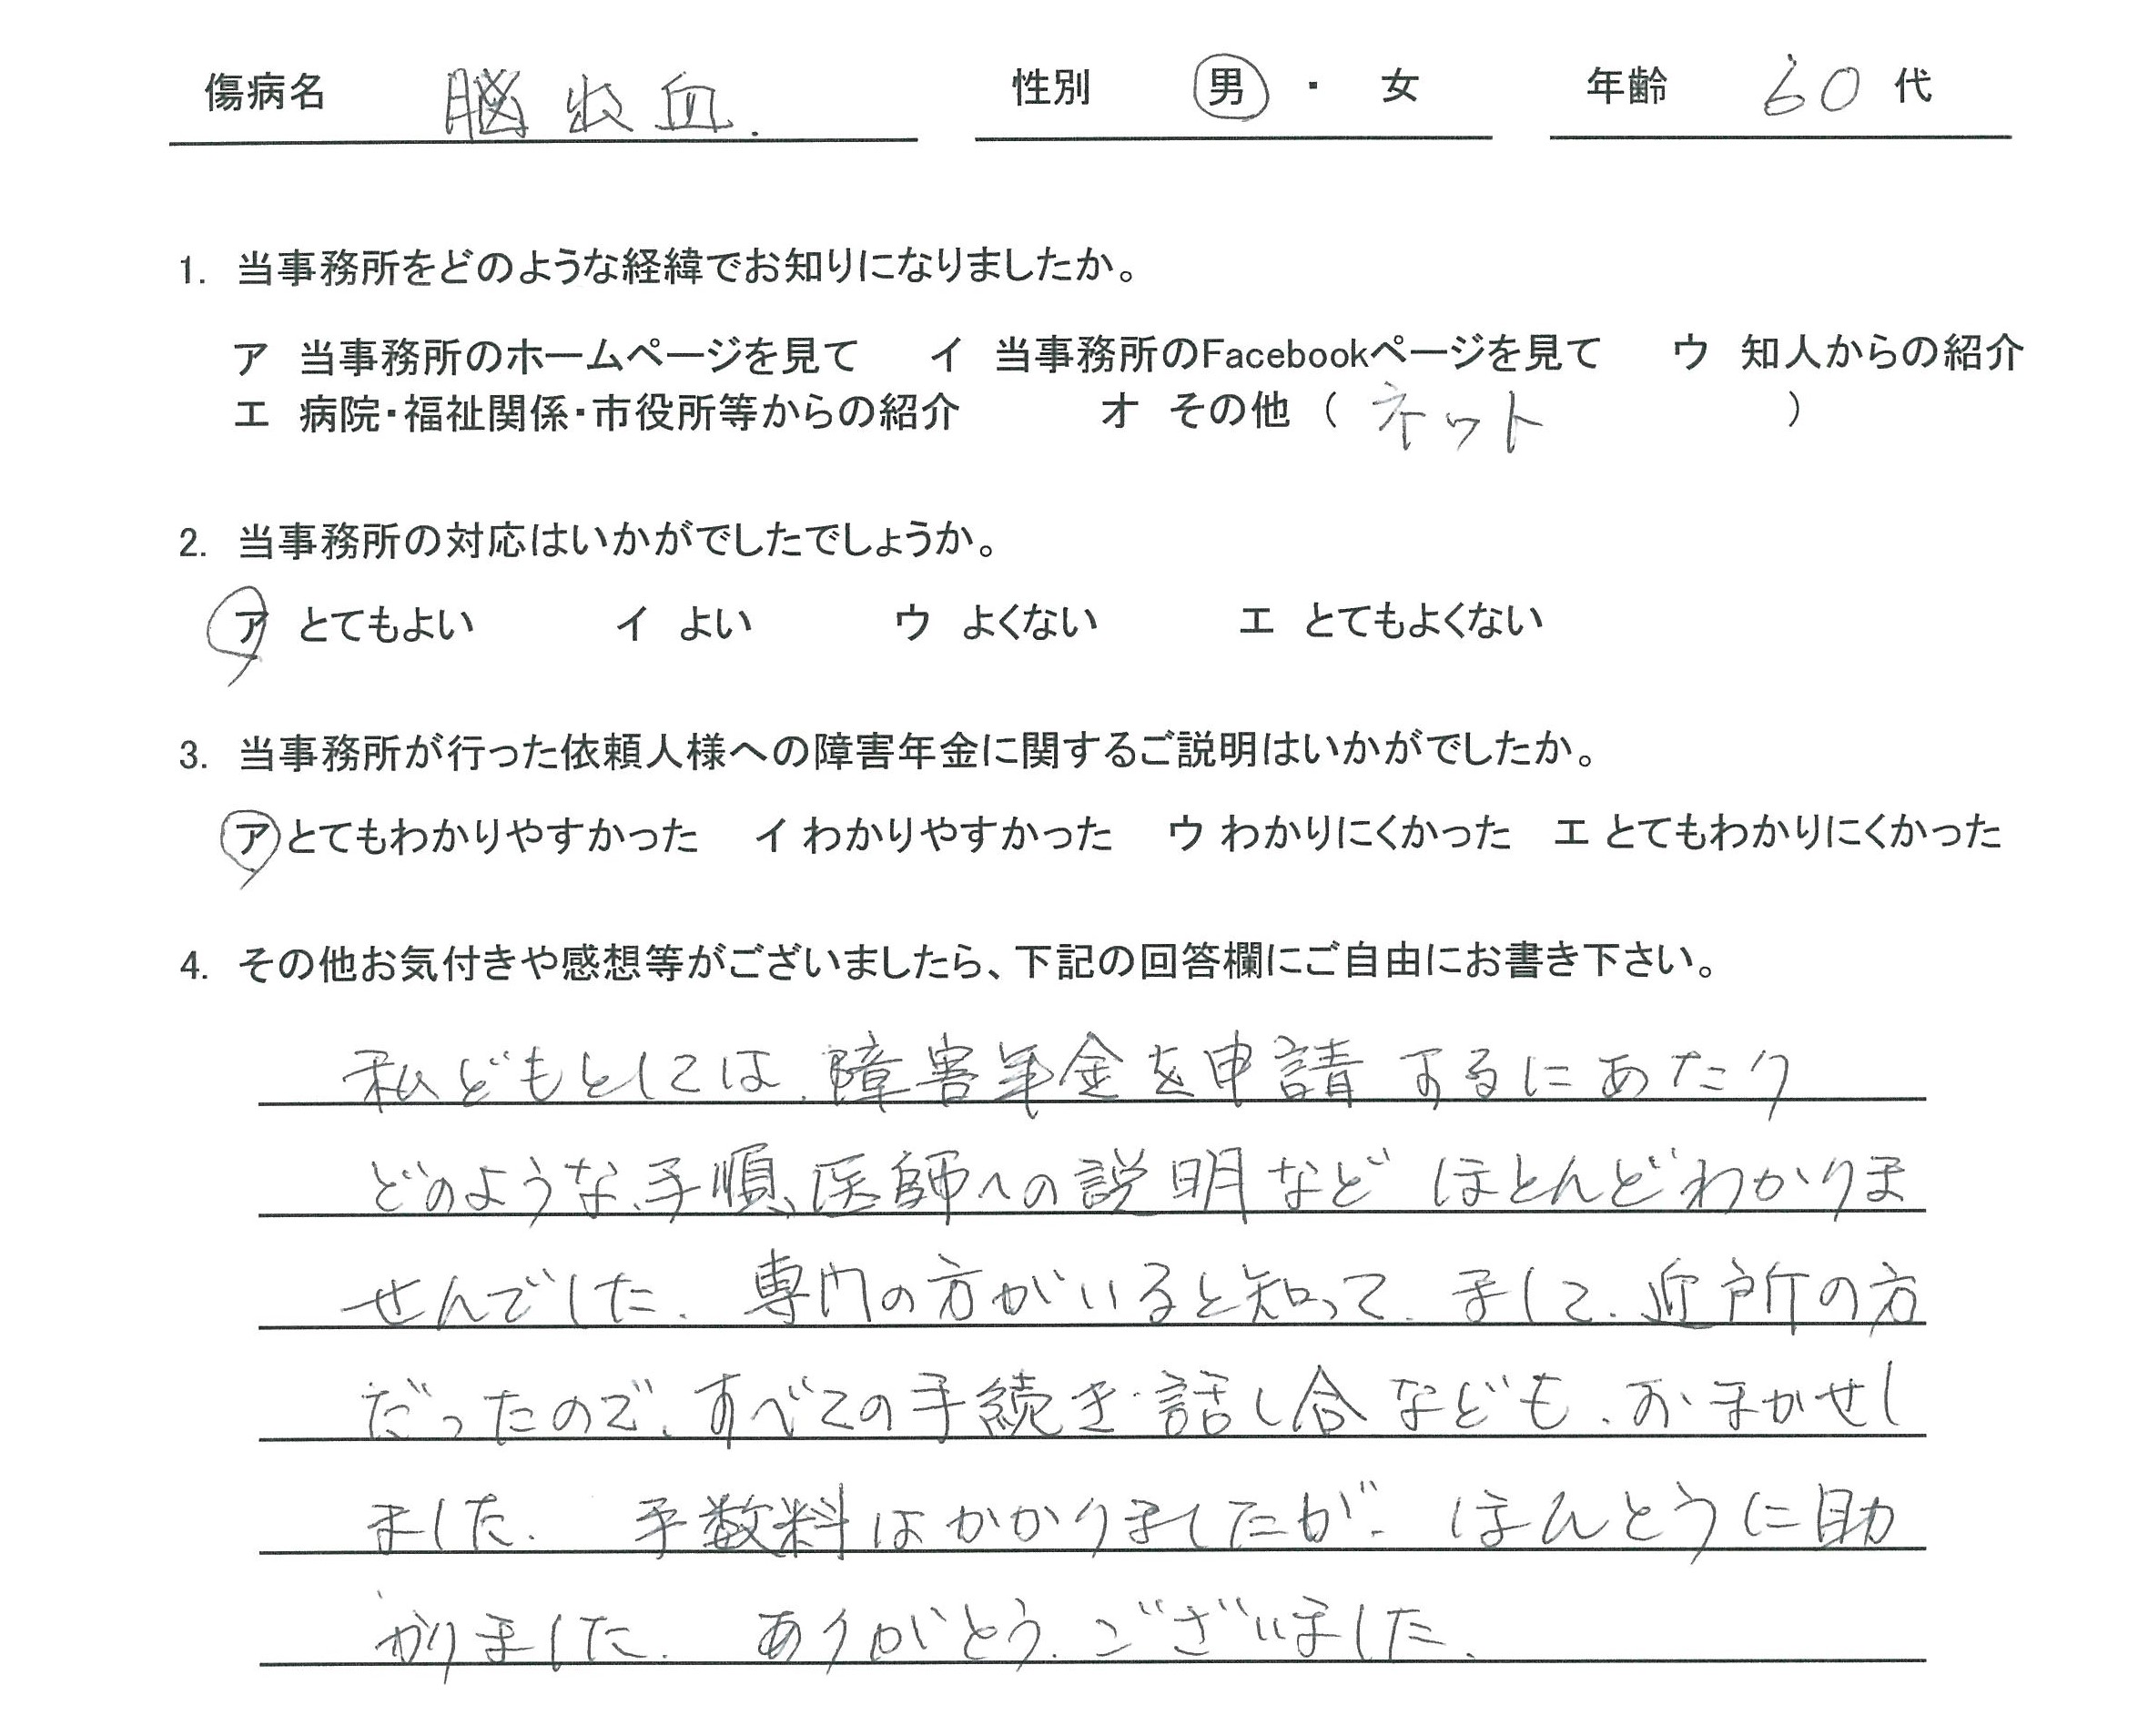 傷病名 脳出血. 性別 男 ・ 女 年齢 60 代
1. 当事務所をどのような経緯でお知りになりましたか。
ア 当事務所のホームページを見て イ 当事務所のFacebookページを見て ウ 知人からの紹介
エ 病院・福祉関係・市役所等からの紹介 オ その他 ( ネット )
2. 当事務所の対応はいかがでしたでしょうか。
ア とてもよい イ よい ウ よくない エ とてもよくない
3. 当事務所が行った依頼人様への障害年金に関するご説明はいかがでしたか。
ア とてもわかりやすかった イ わかりやすかった ウ わかりにくかった エ とてもわかりにくかった
4. その他お気付きや感想等がございましたら、下記の回答欄にご自由にお書き下さい。
私どもとしては、障害年金を申請するにあたり
どのような、手順、医師への説明など ほとんどわかりま
せんでした. 専門の方がいると知って、まして、近所の方
だったので、すべての手続き・話し合なども、おまかせし
ました. 手数料はかかりましたが、ほんとうに助
かりました. ありがとう、ございました.